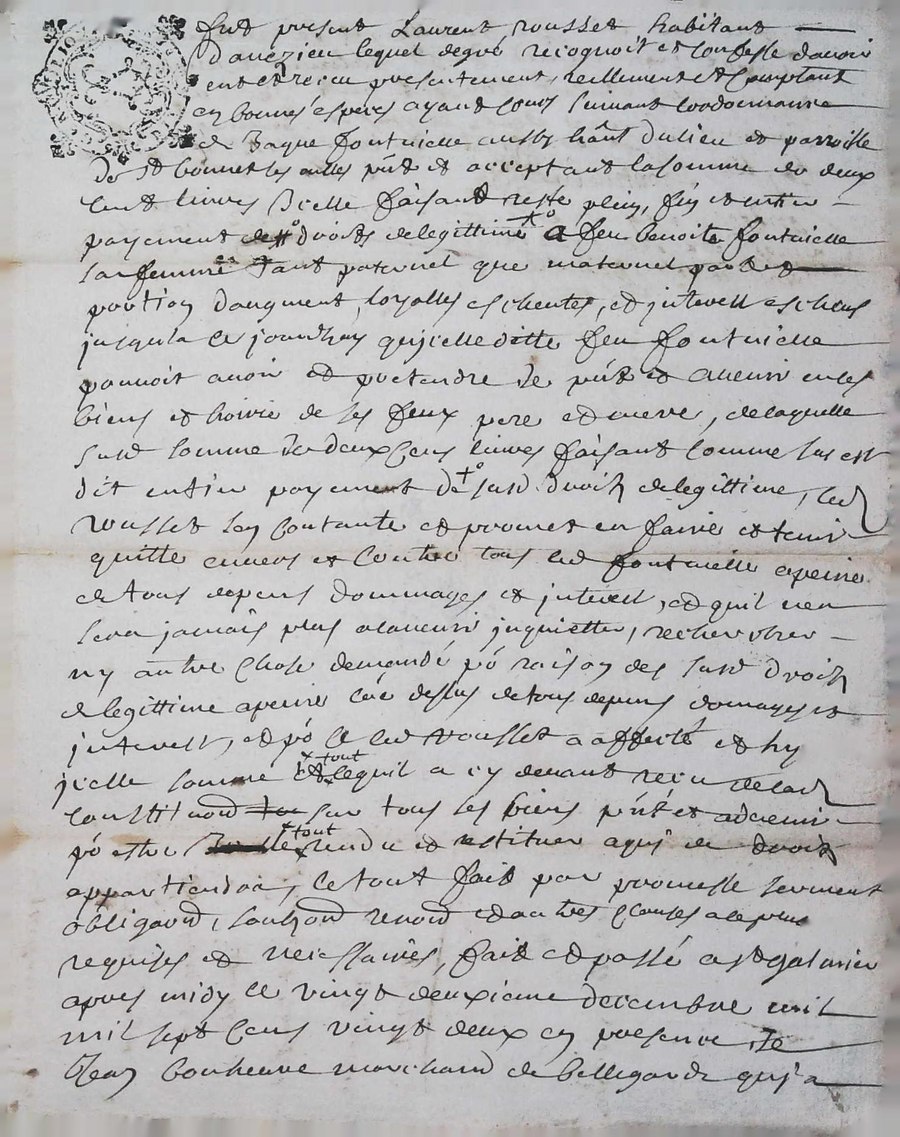 fut present Laurent rousset habitant
daveizieu lequel degré recognoit et confesse davoir
eut et recu presentement, reellement et comptant
en bonnes espèces ayant cours suivant lordonnance
de fontvielle aussy habitant dulieu et parroisse
de St bonnet les oulles pnt et acceptant lasomme de deux
cent livres Icelle faisant reste plein, fin et entier
payement des droits delegittime a feu benoite fontvielle
sa femme tant paternel que maternel
portion daugment, loyalles escheutes, et interest escheus
jusqua ce jourdhuy quicelle ditte feu fontvielle
pouvoit avoir et pretendre de pnt et avenir en les
biens et hoirie de ses feux pere et mere, delaquelle
susd somme de deux cens livres faisant comme sus est
dit entier payement de susd droits delegittime, led
rousset son contante et promet en faire et tenir
quitte envers et contre tous led fontvielle apeine
de tous depens dommages et interest, et quil nen
sera jamais plus alavenir inquietter, rechercher
ny autre chose demandé pr raison des susd droits
delegittime apeine que dessus de tous depens domages et
interest, et pr ce led rousset a affecté et hy
icelle somme et tout cequil a cy devant recu delad
constituon sur tous ses biens pnt et advenir
pr estre tout rendu et restituer aqui de droit
appartiendra, le tout fait par promesse serment
obligaon, soubzon renon et autres clauses
requises et necessaires, fait et passé a st galmier
apres midy ce vingt deuxieme decembre mil
mil sept cens vingt deux en presence de
Jean bonheure marchand de bellegarde qui a